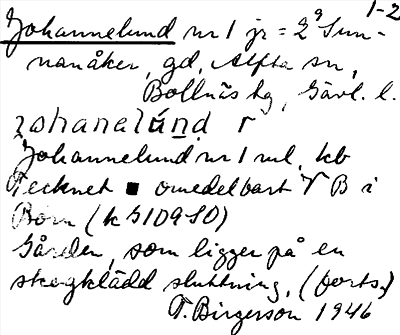 1-2
Johannelund nr 1 jr = 2⁹ Sun-
nanåker, gd, Alfta sn,
Bollnäs hg, Gävl. l.
johanelúnd r
Johannelund nr 1 ml, kb
Tecknet ■ omedelbart V B i
Born (k G109 S0)
Gården, som ligger på en
skogklädd sluttning, (forts.)
T. Birgerson 1946